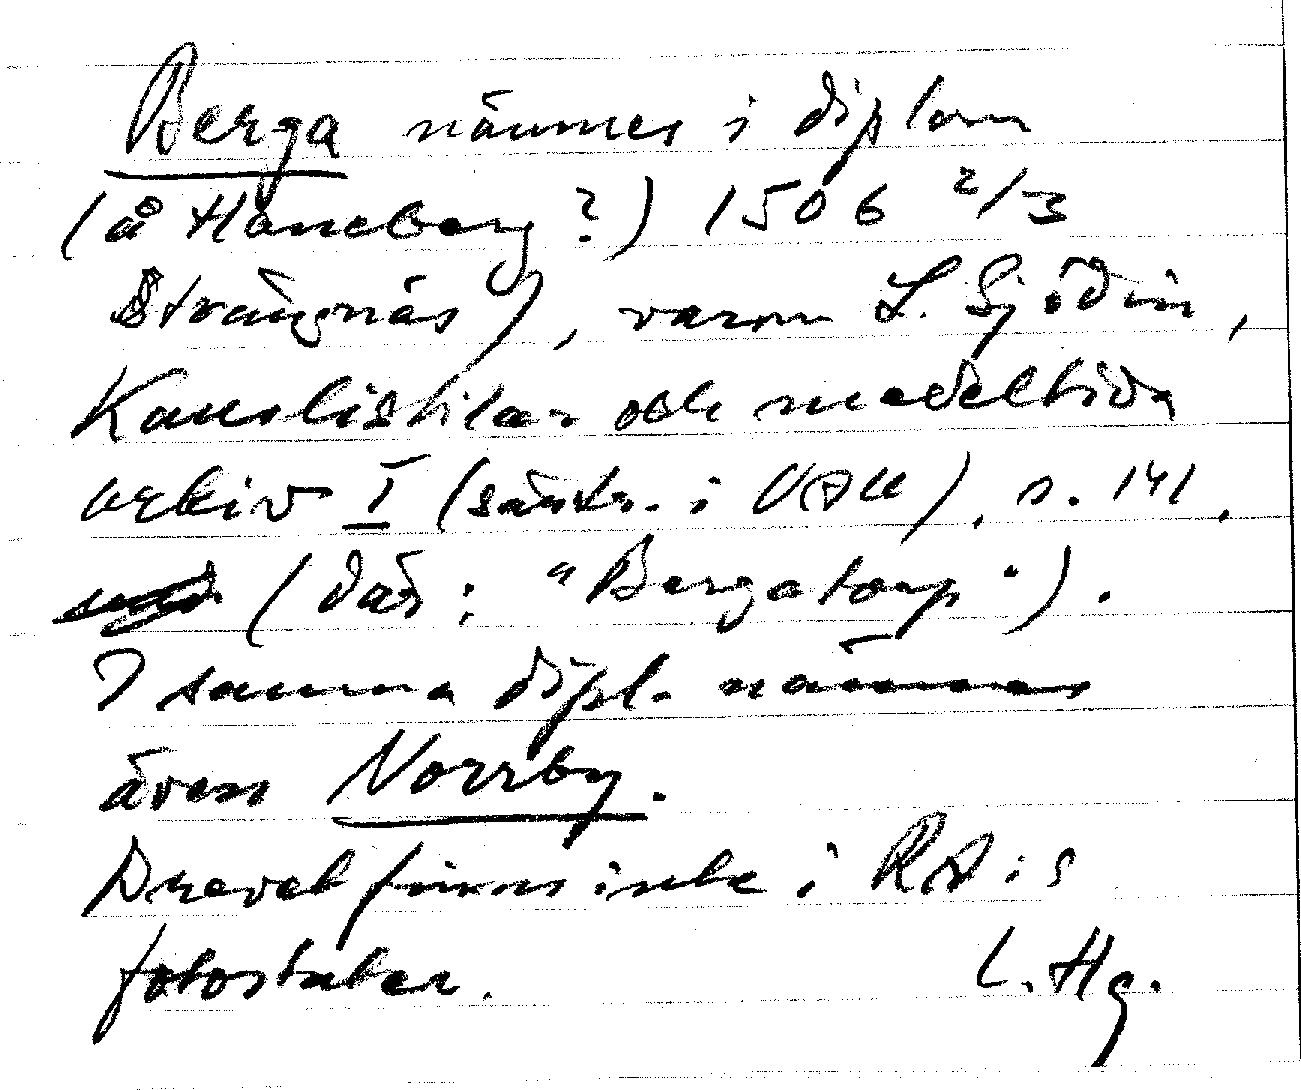 Berga nämnes i diplom
(å Haneberg?) 1506 2/3
Strängnäs), varom L. Sjödin,
Kanslistilar och medeltida
arkiv I (särtr. i UAÅ), s. 141.
(där: "Bergatorp").
I samma dipl. nämnes
även Norrby.
Brevet finns inte i RA:s
fotostater. L. Hg.